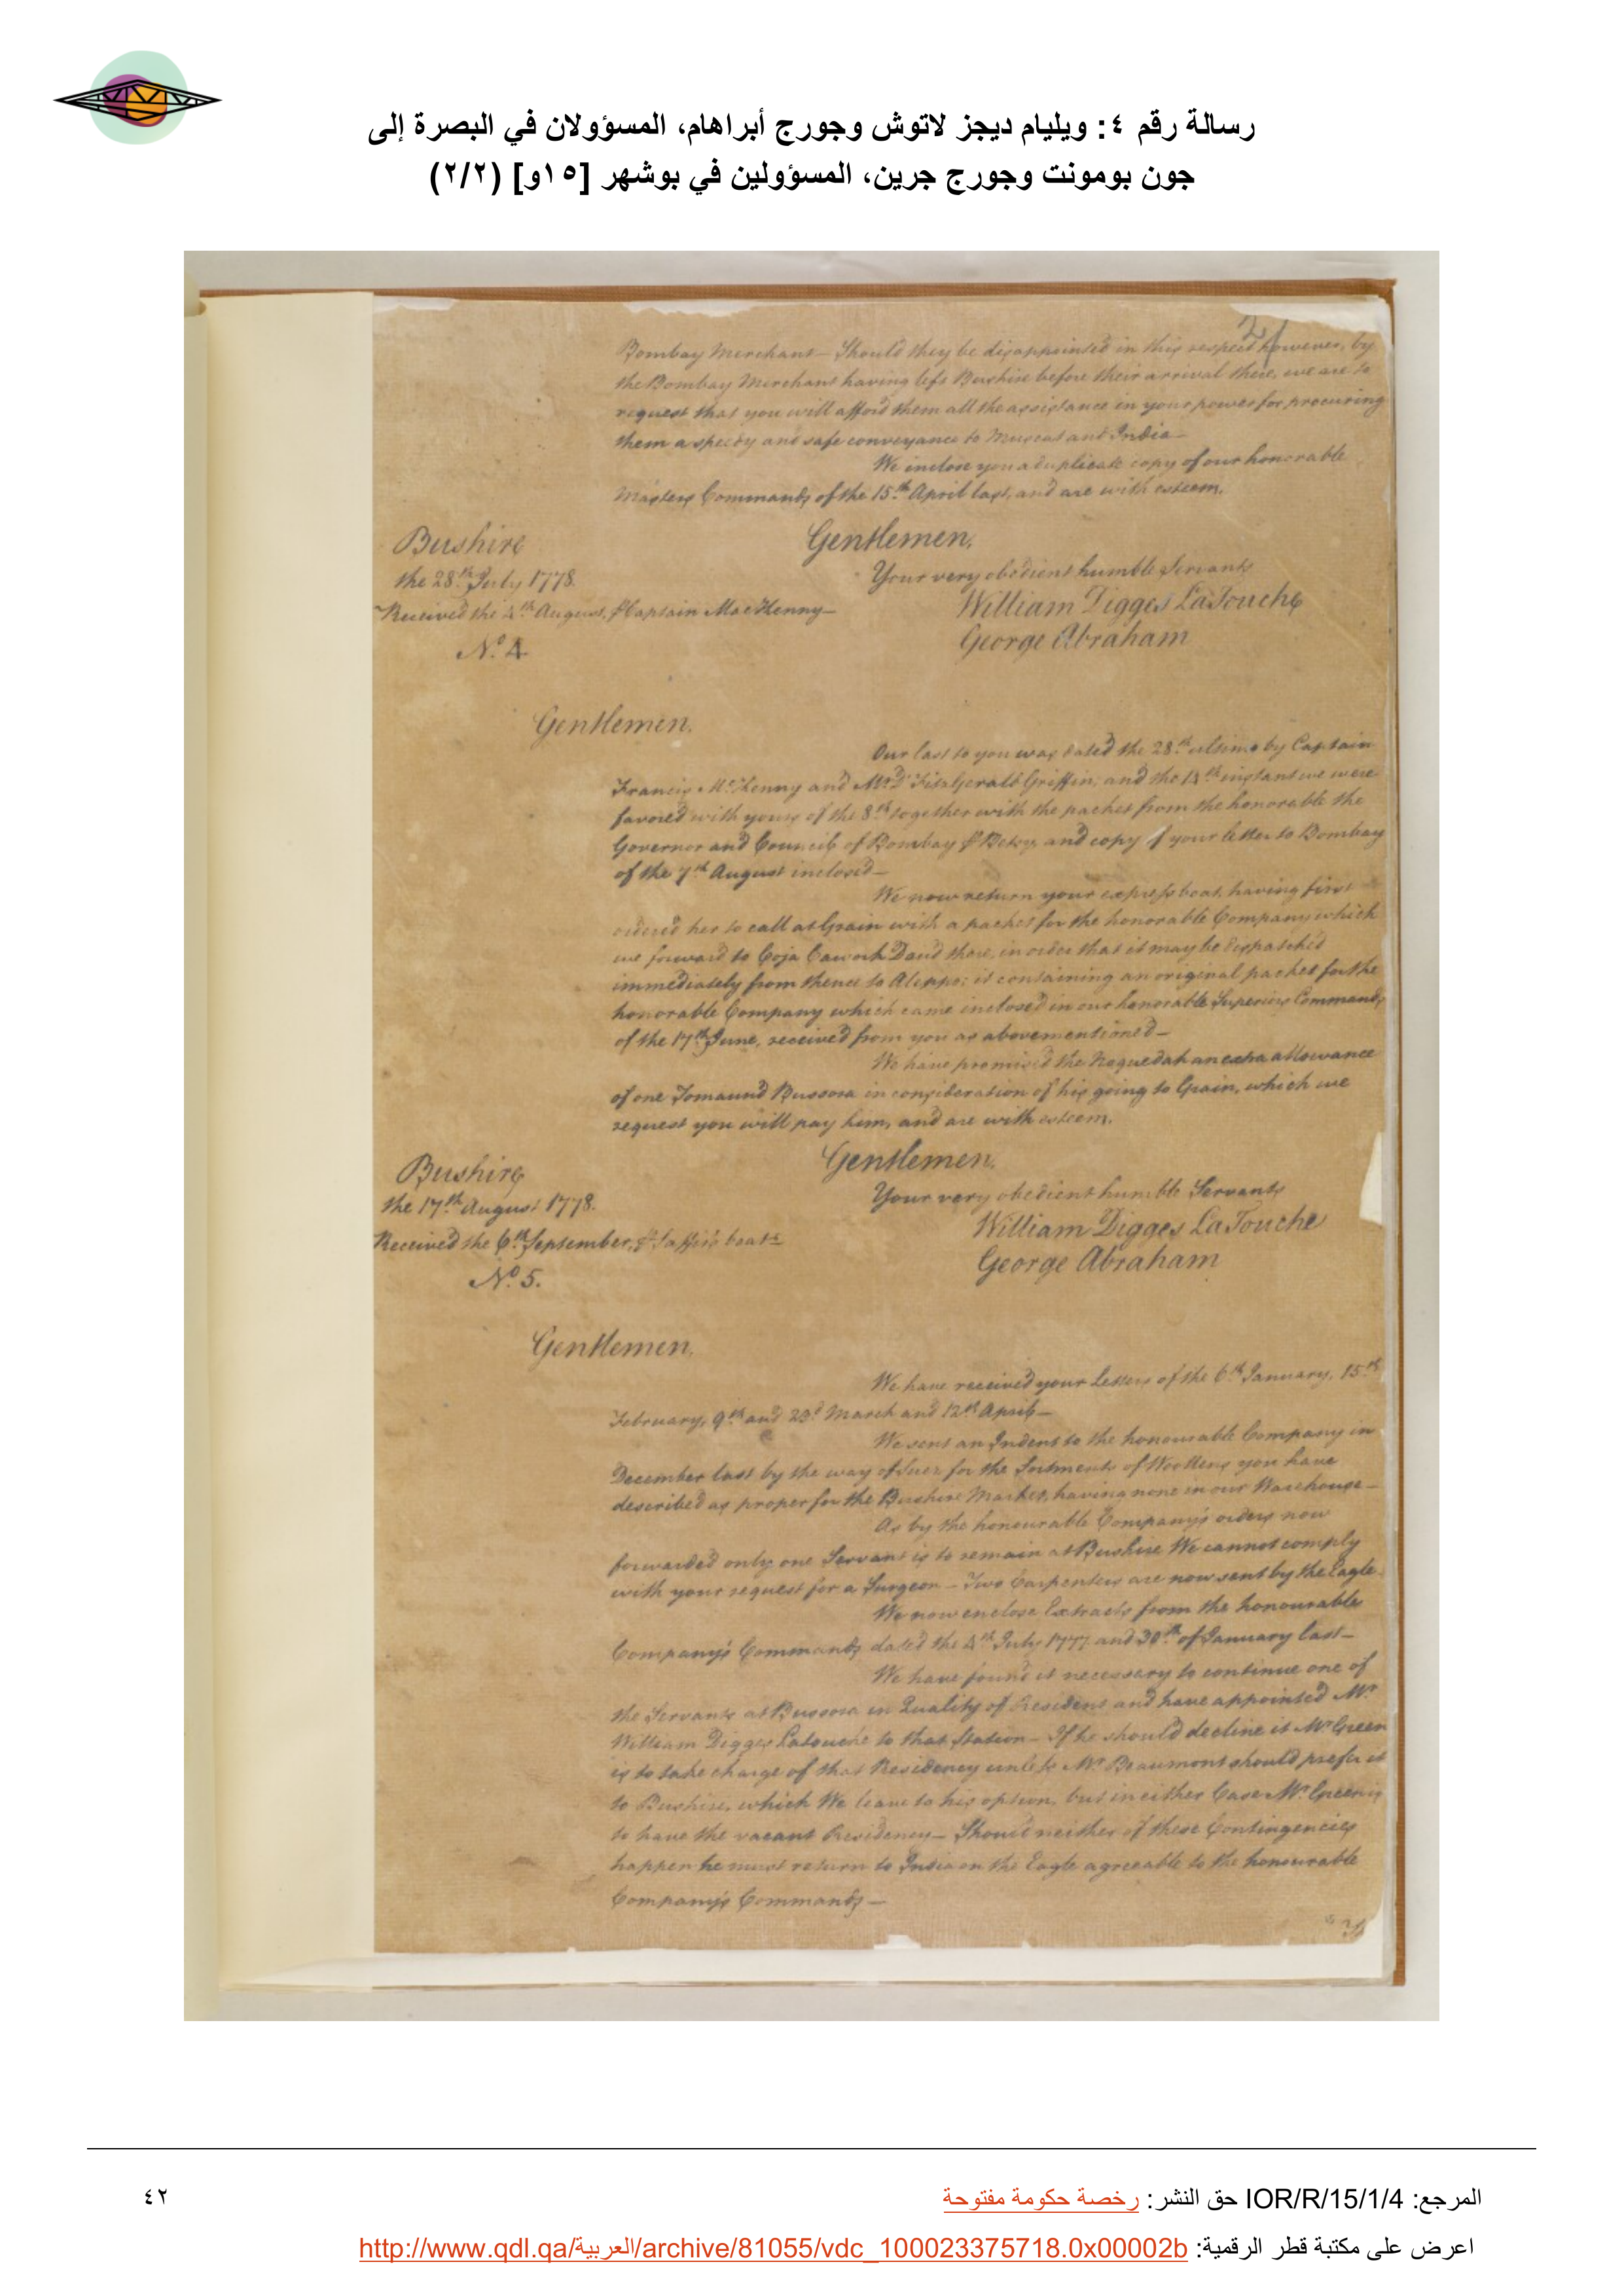 رسالة رقم ٤: ويليام ديجز لاتوش وجورج أبراهام، المسؤولان في البصرة إلى
جون بومونت وجورج جرين، المسؤولين في بوشهر [١٥و] (٢/٢)
21
Bombay Merchant – Should they be disappointed in this respect however, by
the Bombay Merchant having left Bushire before their arrival there, we are to
request that you will afford them all the assistance in your power for procuring
them a speedy and safe conveyance to Muscat and India –
We inclose you a duplicate copy of our honorable
Masters Commands of the 15th April last, and are with esteem,
Gentlemen,
Your very obedient humble Servants
William Digges LaTouche
George Abraham
Bushire
the 28th July 1778.
Received the 4th August, ⅌ Captain MacKenny –
No. 4
Gentlemen,
Our last to you was dated the 28th ultimo by Captain
Francis McKenny and Mr. FitzGerald Griffin; and the 14th instant we were
favored with yours of the 8th together with the packet from the honorable the
Governor and Council of Bombay ⅌ Betsy, and copy of your letter to Bombay
of the 7th August inclosed –
We now return your express boat, having first
ordered her to call at Grain with a packet for the honorable Company which
we forward to Coja Cawork Daud there, in order that it may be dispatched
immediately from thence to Aleppo; it containing an original packet for the
honorable Company which came inclosed in our honorable Superiors Commands
of the 17th June, received from you as abovementioned –
We have promised the Noquedah an extra allowance
of one Tomaund Bussora in consideration of his going to Grain, which we
request you will pay him, and are with esteem,
Gentlemen,
Your very obedient humble Servants
William Digges LaTouche
George Abraham
Bushire
the 17th August 1778.
Received the 6th September, ⅌ boat
No. 5.
Gentlemen,
We have received your Letters of the 6th January, 15th
February, 9th and 23d March and 12th April –
We sent an Indent to the honourable Company in
December last by the way of Suez for the Sortments of Woollens you have
described as proper for the Bushire Market, having none in our Warehouse –
As by the honourable Company's orders now
forwarded only one Servant is to remain at Bushire We cannot comply
with your request for a Surgeon – Two Carpenters are now sent by the Eagle –
We now enclose Extracts from the honourable
Company's Commands dated the 4th July 1777 and 30th of January last –
We have found it necessary to continue one of
the Servants at Bussora in Quality of Resident and have appointed Mr.
William Digges Latouche to that Station – If he should decline it Mr Green
is to take charge of that Residency unless Mr. Beaumont should prefer it
to Bushire, which We leave to his option, but in either Case Mr. Green is
to have the vacant Residency – Should neither of these Contingencies
happen he must return to India on the Eagle agreeable to the honourable
Company's Commands –
المرجع: IOR/R/15/1/4 حق النشر: رخصة حكومة مفتوحة
٤٢
اعرض على مكتبة قطر الرقمية: http://www.qdl.qa/العربية/archive/81055/vdc_100023375718.0x00002b